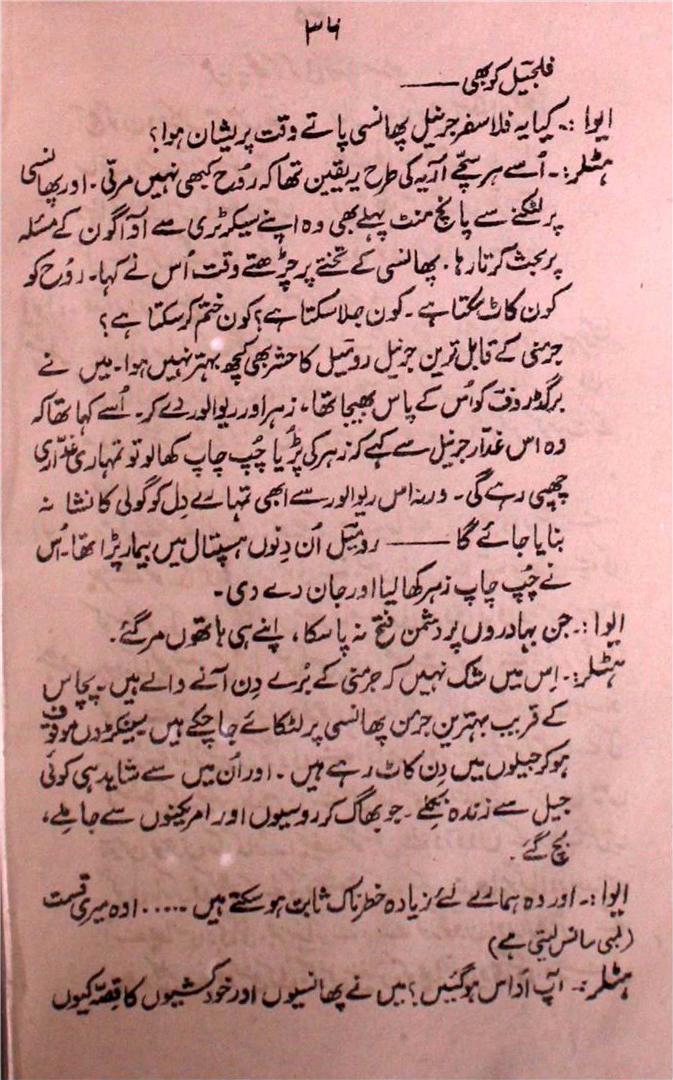 ۳۶
فلجیل کو بھی ——
ایوا :۔ کیا یہ فلاسفر جرنیل پھانسی پاتے وقت پریشان ہوا؟
ہٹلر:۔ اُسے ہر سچے آریہ کی طرح یہ یقین تھا کہ رُوح کبھی نہیں مرتی۔ اور پھانسی
پر لٹکنے سے پانچ منٹ پہلے بھی وہ اپنے سیکرٹری سے آواگون کے مسئلہ
پر بحث کرتا رہا۔ پھانسی کے تختے پر چڑھتے وقت اُس نے کہا۔ رُوح کو
کون کاٹ سکتا ہے۔ کون جلا سکتا ہے؟ کون ختم کر سکتا ہے؟
جرمنی کے قابل ترین جرنیل رومیل کا حشر بھی کچھ بہتر نہیں ہوا۔ میں نے
برگڈروف کو اُس کے پاس بھیجا تھا، زہر اور ریوالور دے کر۔ اُسے کہا تھا کہ
وہ اس غدّار جرنیل سے کہے کہ زہر کی پُڑیا چُپ چاپ کھا لو تو تمہاری غدّاری
چھپی رہے گی۔ ورنہ اس ریوالور سے ابھی تمہارے دِل کو گولی کا نشانہ
بنایا جائے گا —— رومیل اُن دِنوں ہسپتال میں بیمار پڑا تھا۔ اُس
نے چُپ چاپ زہر کھا لیا اور جان دے دی۔
ایوا :۔ جن بہادروں پر دشمن فتح نہ پا سکا، اپنے ہی ہاتھوں مر گئے۔
ہٹلر:۔ اِس میں شک نہیں کہ جرمنی کے بُرے دِن آنے والے ہیں۔ پچاس
کے قریب بہترین جرمن پھانسی پر لٹکائے جا چکے ہیں سینکڑوں موقوف
ہو کر جیلوں میں دِن کاٹ رہے ہیں۔ اور اُن میں سے شاید ہی کوئی
جیل سے زندہ نکلے۔ جو بھاگ کر روسیوں اور امریکنوں سے جا ملے،
بچ گئے۔
ایوا :۔ اور وہ ہمارے لئے زیادہ خطرناک ثابت ہو سکتے ہیں ..... اوہ میری قسمت
(لمبی سانس لیتی ہے)
ہٹلر:۔ آپ اُداس ہو گئیں؟ میں نے پھانسیوں اور خودکشیوں کا قِصّہ کیوں